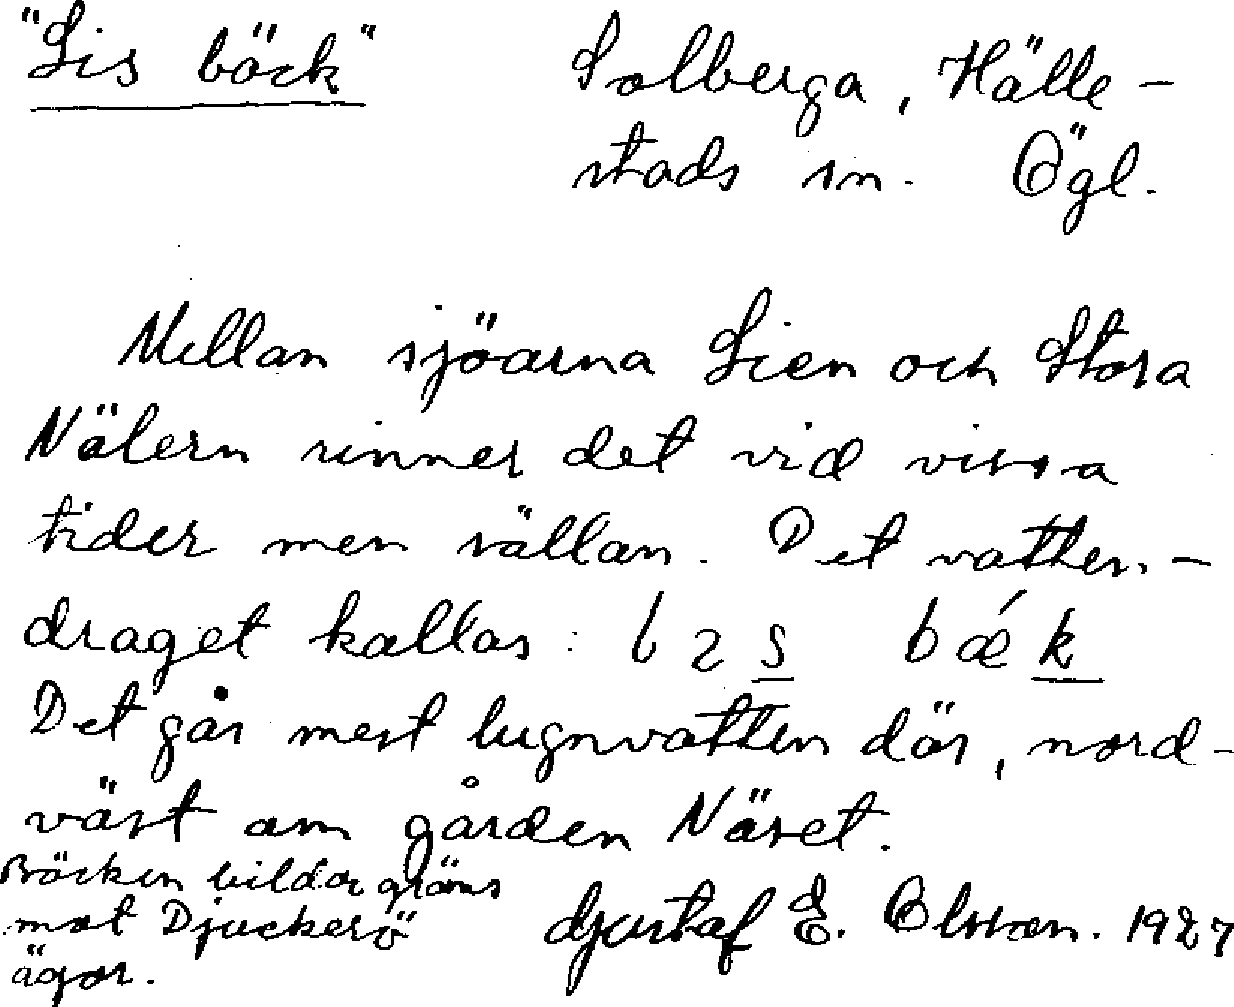 "Lis böck"
Solberga, Hälle-
stads sn. Ögl.
Mellan sjöarna Lien och Stora
Nälern rinner det vid vissa
tider men sällan. Det vatten-
draget kallas:
Det går mest lugnvatten där, nord-
väst om gården Näset.
Böcken bildar gräns
mot Djuckerö
ägor.
Gustaf E. Olsson. 1927